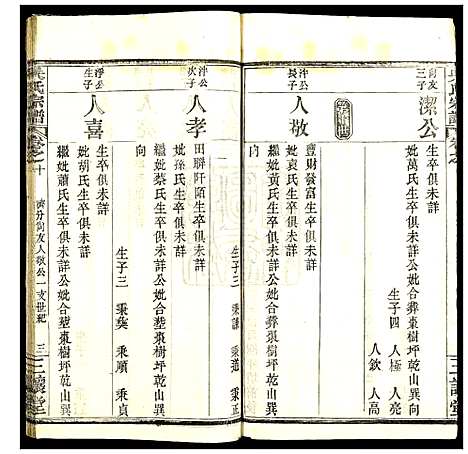 向友三子
潔公
生卒俱未詳
妣萬氏生卒俱未詳公妣合葬棗樹坪乾山巽向
生子四 人極 人亮 人欽 人高
沖公長子
人敬
豐財發富生卒俱未詳
妣袁氏生卒俱未詳
繼妣黃氏生卒俱未詳公妣合葬棗樹坪乾山巽向
生子三 秉謙 秉道 秉正
沖公次子
人孝
田聯阡陌生卒俱未詳
妣孫氏生卒俱未詳
繼妣蔡氏生卒俱未詳公妣合塟棗樹坪乾山巽向
生子三 秉奬 秉順 秉貞
淨公生子
人喜
生卒俱未詳
妣胡氏生卒俱未詳
繼妣蕭氏生卒俱未詳公妣合塟棗樹坪乾山巽
吳氏宗譜
卷之十
濟分向友人敬公一支世紀
三
三讓堂